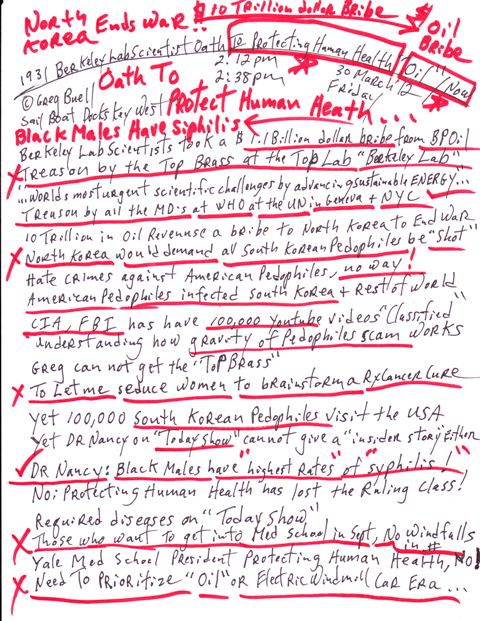 North Korea Ends War!! $10 Trillion dollar Bribe
$ Oil Bribe
1931 Berkeley Lab Scientist Oath To Protecting Human Health / Oil / Now
Oath To
2:12pm
2:38pm
30 March 12
Friday
© Greg Buell
Sail Boat Docks Key West
Protect Human Heath...
Black Males Have Siphilis
Berkeley Lab Scientists took a $1.1 Billion dollar bribe from BP Oil
Treason by the Top Brass at the Top Lab "Berkeley Lab"
"...Worlds most urgent scientific challenges by advancing sustainable ENERGY...
Treason by all the MD's at WHO at the UN in Geneva + NYC
10 Trillion in Oil Revenuse a bribe to North Korea to End War
North Korea would demand all South Korean Pedophiles be "shot"
Hate crimes against American Pedophiles, no way!
American Pedophiles infected South Korea + Rest of World
CIA, FBI has have 100,000 Youtube videos "Classified"
understanding how gravity of Pedophiles scam works
Greg can not get the "Top Brass"
To Let me seduce women to brainstorm a Rx Cancer Cure
Yet 100,000 South Korean Pedophiles visit the USA
Yet DR Nancy on "Today Show" cannot give a "insider story" Either
DR Nancy: Black Males have "highest Rates" of "syphilis!"
No: Protecting Human Health has lost the Ruling Class!
Required diseases on "Today Show"
Those who want to get into Med School in Sept, No Windfalls in $
Yale Med School President Protecting Human Health, NO!
Need To Prioritize "Oil" OR Electric Windmill Car Era...